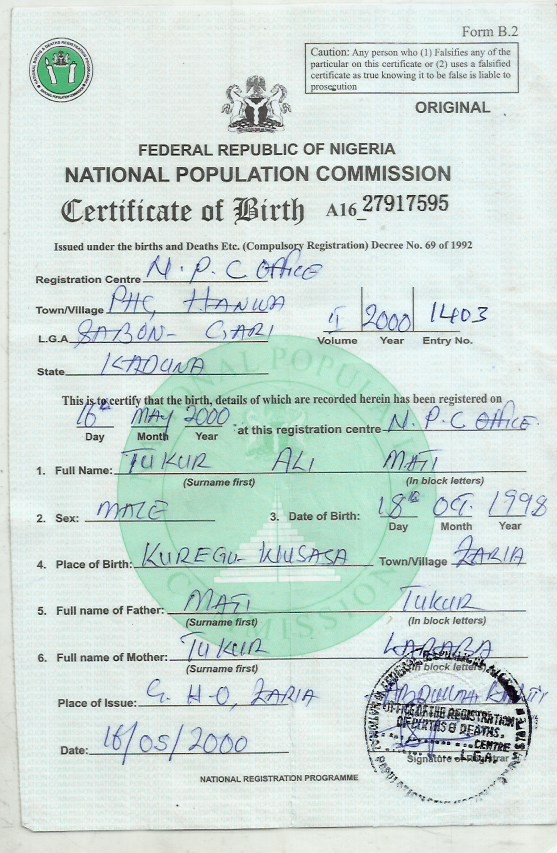 Form B.2
Caution: Any person who (1) Falsifies any of the
particular on this certificate or (2) uses a falsified
certificate as true knowing it to be false is liable to
prosecution
ORIGINAL
FEDERAL REPUBLIC OF NIGERIA
NATIONAL POPULATION COMMISSION
Certificate of Birth A16 27917595
Issued under the births and Deaths Etc. (Compulsory Registration) Decree No. 69 of 1992
Registration Centre N.P.C OFFICE
Town/Village PHC, HANWA
L.G.A SABON-GARI
I 2000 1403
Volume Year Entry No.
State KADUNA
This is to certify that the birth, details of which are recorded herein has been registered on
16th MAY 2000 at this registration centre N.P.C OFFICE.
Day Month Year
1. Full Name: TUKUR ALI MATI
(Surname first) (In block letters)
2. Sex: MALE 3. Date of Birth: 18th OCT. 1998
Day Month Year
4. Place of Birth: KUREGU-WUSASA Town/Village ZARIA
5. Full name of Father: MATI TUKUR
(Surname first) (In block letters)
6. Full name of Mother: TUKUR LARABA
(Surname first) (In block letters)
Place of Issue: G.H.O, ZARIA
OFFICE OF THE REGISTRATION
OF BIRTHS & DEATHS.
CENTRE
L.G.A.
Date: 16/05/2000
Signature of Registrar
NATIONAL REGISTRATION PROGRAMME